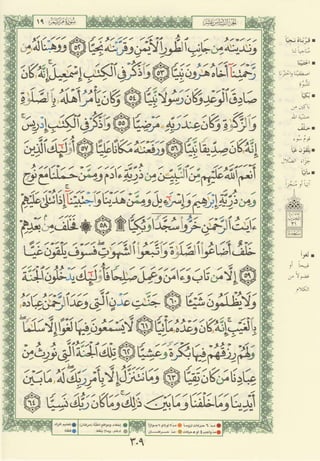 الجزء السادس عشر
سورة مريم ١٩
وَنَٰدَيْنَٰهُ مِن جَانِبِ ٱلطُّورِ ٱلْأَيْمَنِ وَقَرَّبْنَٰهُ نَجِيًّا ٥٢ وَوَهَبْنَا لَهُۥ مِن
رَّحْمَتِنَآ أَخَاهُ هَٰرُونَ نَبِيًّا ٥٣ وَٱذْكُرْ فِى ٱلْكِتَٰبِ إِسْمَٰعِيلَ إِنَّهُۥ كَانَ
صَادِقَ ٱلْوَعْدِ وَكَانَ رَسُولًا نَّبِيًّا ٥٤ وَكَانَ يَأْمُرُ أَهْلَهُۥ بِٱلصَّلَوٰةِ
وَٱلزَّكَوٰةِ وَكَانَ عِندَ رَبِّهِۦ مَرْضِيًّا ٥٥ وَٱذْكُرْ فِى ٱلْكِتَٰبِ إِدْرِيسَ
إِنَّهُۥ كَانَ صِدِّيقًا نَّبِيًّا ٥٦ وَرَفَعْنَٰهُ مَكَانًا عَلِيًّا ٥٧ أُو۟لَٰٓئِكَ ٱلَّذِينَ
أَنْعَمَ ٱللَّهُ عَلَيْهِم مِّنَ ٱلنَّبِيِّـۧنَ مِن ذُرِّيَّةِ ءَادَمَ وَمِمَّنْ حَمَلْنَا مَعَ نُوحٍ
وَمِن ذُرِّيَّةِ إِبْرَٰهِيمَ وَإِسْرَٰٓءِيلَ وَمِمَّنْ هَدَيْنَا وَٱجْتَبَيْنَآ إِذَا تُتْلَىٰ عَلَيْهِمْ
ءَايَٰتُ ٱلرَّحْمَٰنِ خَرُّوا۟ سُجَّدًا وَبُكِيًّا ۩ ٥٨ ۞ فَخَلَفَ مِنۢ بَعْدِهِمْ
خَلْفٌ أَضَاعُوا۟ ٱلصَّلَوٰةَ وَٱتَّبَعُوا۟ ٱلشَّهَوَٰتِ فَسَوْفَ يَلْقَوْنَ غَيًّا
٥٩ إِلَّا مَن تَابَ وَءَامَنَ وَعَمِلَ صَٰلِحًا فَأُو۟لَٰٓئِكَ يَدْخُلُونَ ٱلْجَنَّةَ
وَلَا يُظْلَمُونَ شَيْـًٔا ٦٠ جَنَّٰتِ عَدْنٍ ٱلَّتِى وَعَدَ ٱلرَّحْمَٰنُ عِبَادَهُۥ
بِٱلْغَيْبِ إِنَّهُۥ كَانَ وَعْدُهُۥ مَأْتِيًّا ٦١ لَّا يَسْمَعُونَ فِيهَا لَغْوًا إِلَّا سَلَٰمًا
وَلَهُمْ رِزْقُهُمْ فِيهَا بُكْرَةً وَعَشِيًّا ٦٢ تِلْكَ ٱلْجَنَّةُ ٱلَّتِى نُورِثُ مِنْ
عِبَادِنَا مَن كَانَ تَقِيًّا ٦٣ وَمَا نَتَنَزَّلُ إِلَّا بِأَمْرِ رَبِّكَ لَهُۥ مَا بَيْنَ
أَيْدِينَا وَمَا خَلْفَنَا وَمَا بَيْنَ ذَٰلِكَ وَمَا كَانَ رَبُّكَ نَسِيًّا ٦٤
٣٠٩